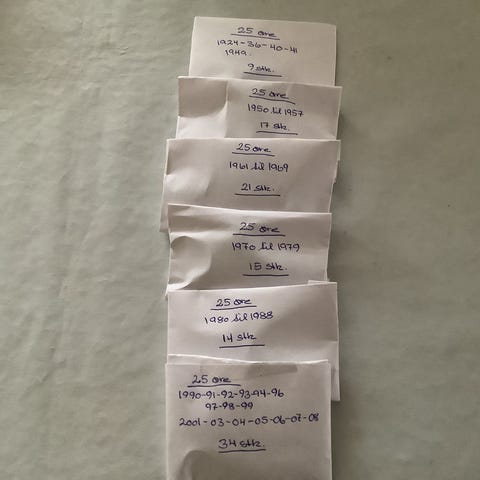 25 øre
1924-36-40-41
1949.
9 stk.
25 øre
1950 til 1957
17 stk.
25 øre
1961 til 1969
21 stk.
25 øre
1970 til 1979
15 stk.
25 øre
1980 til 1988
14 stk.
25 øre
1990-91-92-93-94-96
97-98-99
2001-03-04-05-06-07-08
34 stk.